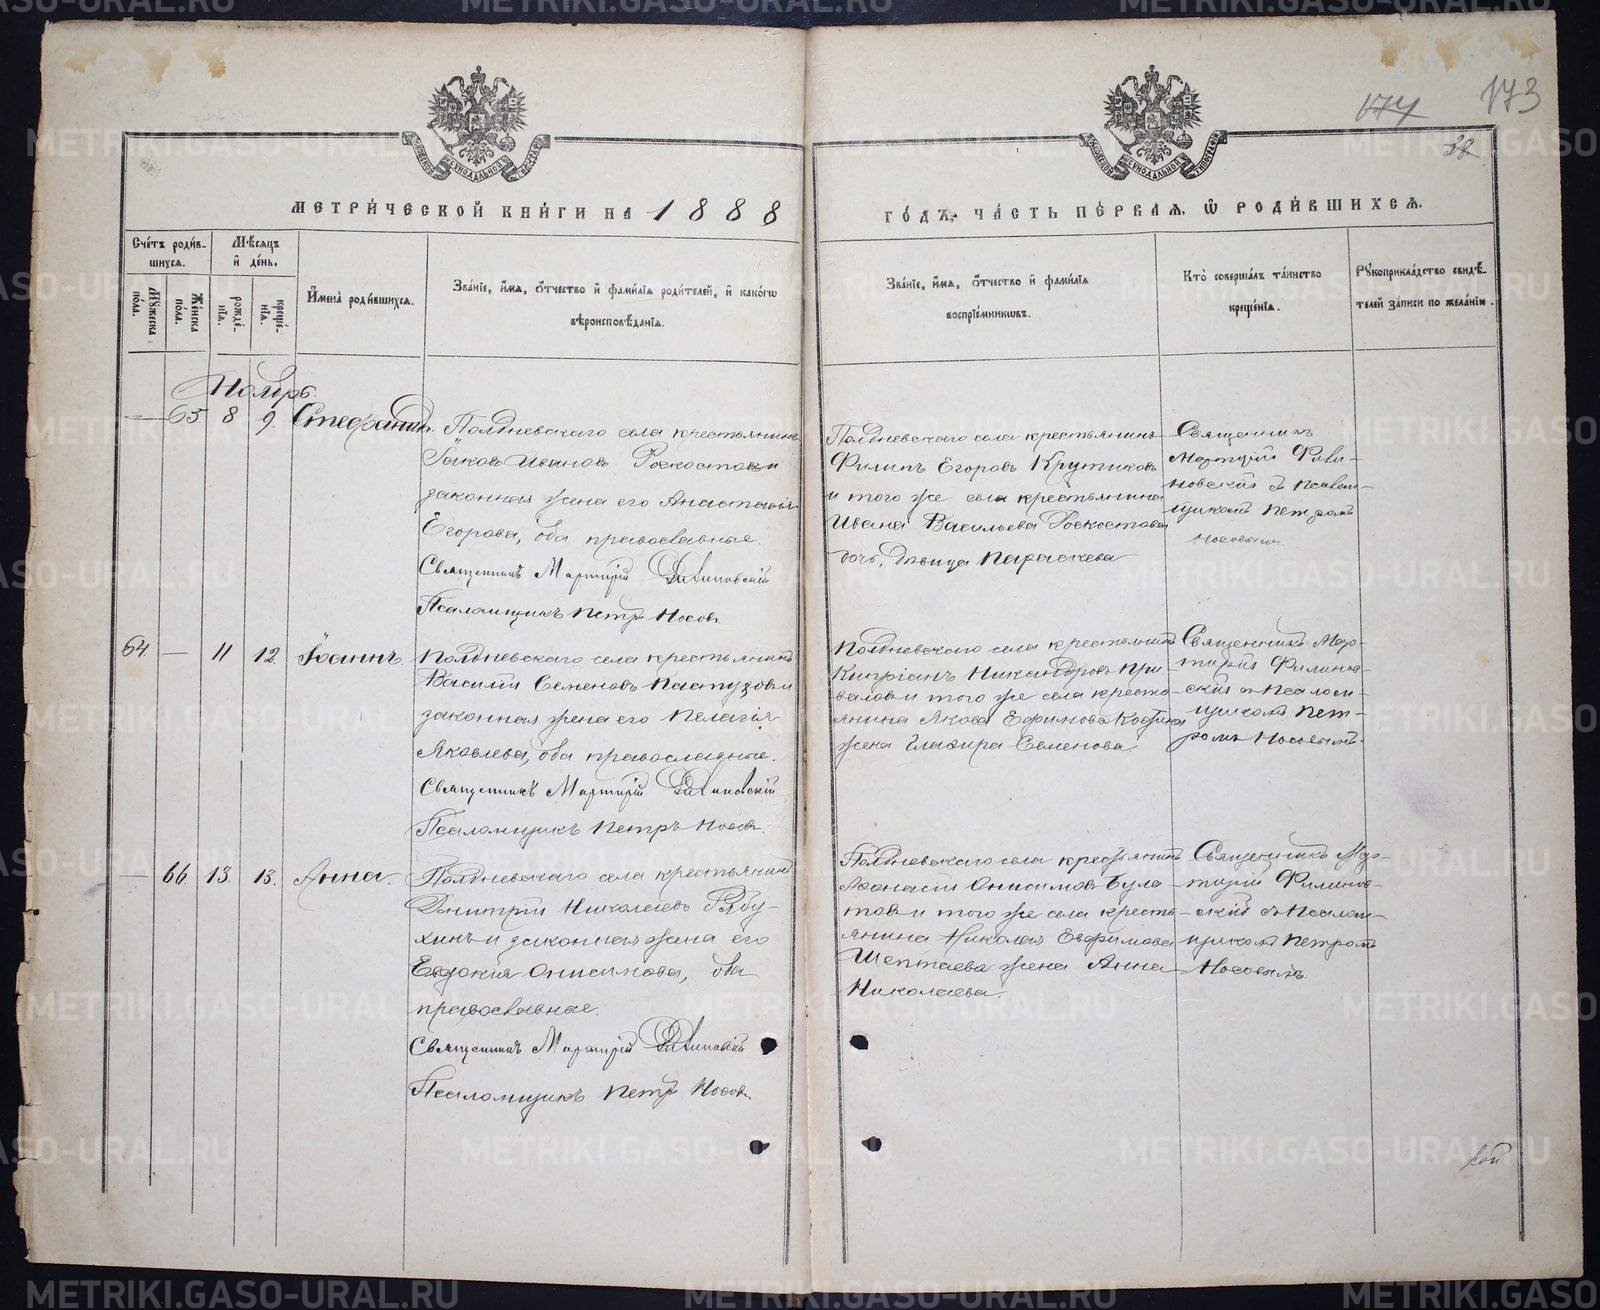 174 173
38
МЕТРИ́ЧЕСКОЙ КНИ́ГИ НА 1888 ГО́ДЪ, ЧА́СТЬ ПЕ́РВАЯ, Ѽ РОДИ́ВШИХСЯ.
Сче́тъ роди́в-
шихся.
Мѣ́сяцъ
и҆ де́нь.
Мꙋжеска
по́ла.
Же́нска
по́ла.
рожде́-
нїя.
креще́-
нїя.
И҆мена̀ роди́вшихся.
Зва́нїе, и҆́мя, ѻ҆́тчество и҆ фами́лїя роди́телей, и҆ како́гѡ
вѣроисповѣ́данїя.
Зва́нїе, и҆́мя, ѻ҆́тчество и҆ фами́лїя
воспрїе́мникѡвъ.
Кто̀ соверша́лъ та́инство
креще́нїя.
Рꙋкоприкла́дство свидѣ́-
телей за́писи по жела́нїю.
Ноябрь.
— 65 8 9.
Полдневскаго села крестьянинъ
Іаковъ Ивановъ Роскостовъ и
законная жена его Анастасія
Егорова, оба православные.
Священникъ Мартирій Филиновскій
Псаломщикъ Петръ Носовъ
Полдневскаго села крестьянинъ
Филипъ Егоровъ Крутиковъ
и того же села крестьянина
Ивана Васильева Роскостова
дочь, дѣвица Параскева
Священникъ
Мартирій Фили-
новскій съ Псалом-
щикомъ Петромъ
Носовымъ.
64 — 11 12. Іоаннъ.
Полдневскаго села крестьянинъ
Василій Семеновъ Пастуховъ и
законная жена его Пелагія
Яковлева, оба православные.
Священникъ Мартирій Филиновскій
Псаломщикъ Петръ Носовъ.
Полдневскаго села крестьянинъ
Кипріанъ Никандровъ При-
валовъ и того же села кресть-
янина Якова Ефимова
жена Глафира Семенова
Священникъ Мар-
тирій Филинов-
скій съ Псалом-
щикомъ Пет-
ромъ Носовымъ.
— 66 13. 13. Анна.
Полдневскаго села крестьянинъ
Дмитрій Николаевъ Рябу-
хинъ и законная жена его
Евдокія Онисимова, оба
православные.
Священникъ Мартирій Филиновскій
Псаломщикъ Петръ Носовъ.
Полдневскаго села крестьянинъ
Афанасій Онисимовъ Була-
товъ и того же села кресть-
янина Николая Евфимова
Шептаева жена Анна
Николаева.
Священникъ Мар-
тирій Филинов-
скій съ Псалом-
щикомъ Петромъ
Носовымъ.